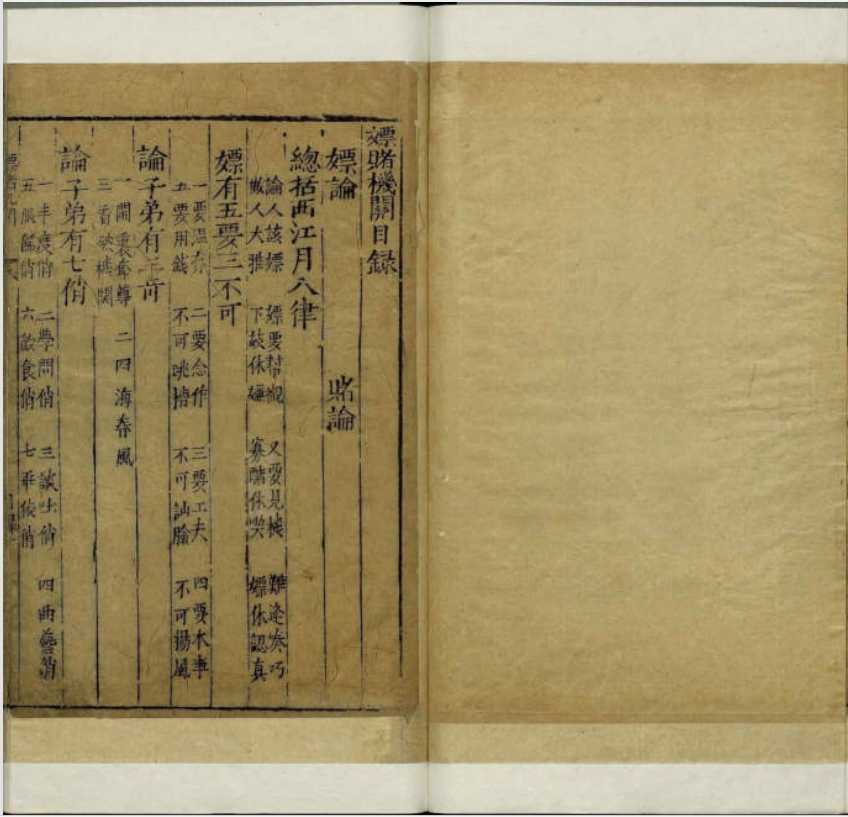 嫖賭機關目録
嫖論 賭論
總括西江月八律
論人該嫖 嫖要幇襯 又要見機 難逢湊巧
做人大雅 休 寡醋休喫 嫖休認真
嫖有五要三不可
一要溫存 二要念作 三要工夫 四要本事
五要用錢 不可跳槽 不可訕臉 不可揚風
論子弟有三
一開 二四海春風
三看破機關
論子弟有七俏
一丰度俏 二學問俏 三談吐俏 四曲藝俏
五服飾俏 六飲食俏 七乖俏